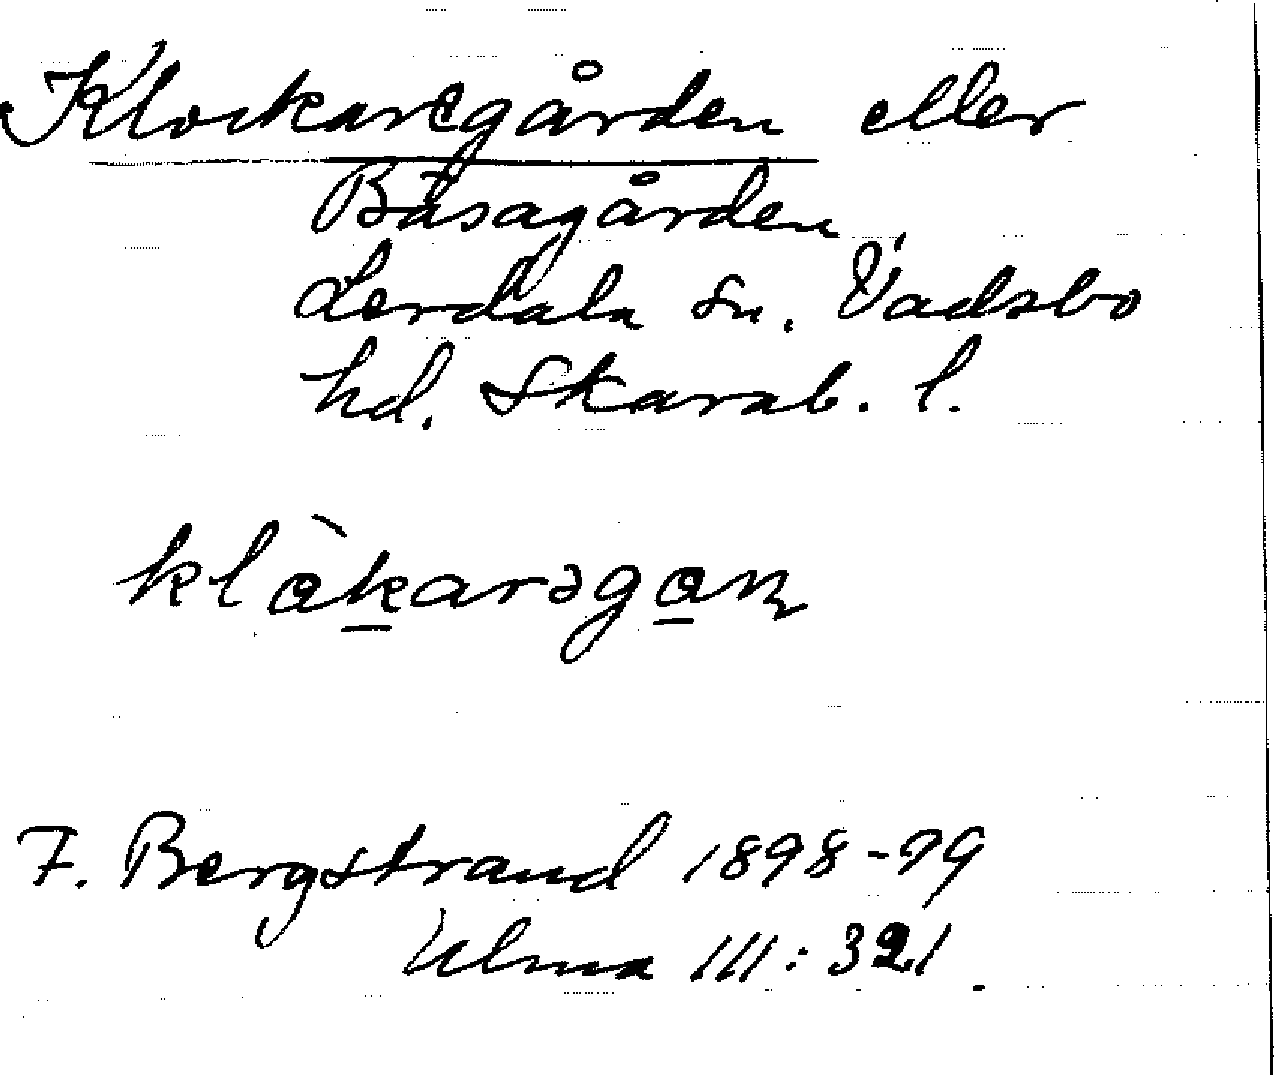 Klockaregården eller
Båsagården,
Lerdala sn. Vadsbo
hd. Skarab. l.
klò̱ka̱rəgo̱ɳ
F. Bergstrand 1898-99
Ulma 111:321.